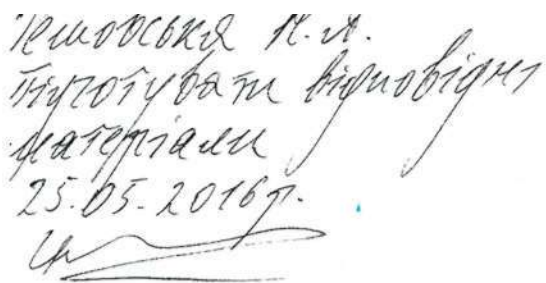 Н. А.
Підготувати відповідні
матеріали
25.05.2016р.